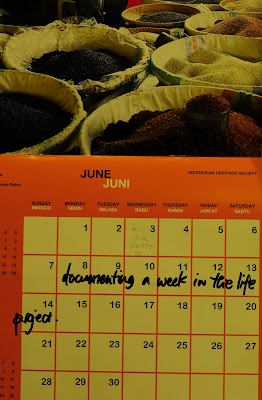 JUNE
JUNI
INDONESIAN HERITAGE SOCIETY
SUNDAY MONDAY TUESDAY WEDNESDAY THURSDAY FRIDAY SATURDAY
MINGGU SENIN SELASA RABU KAMIS JUM'AT SABTU
1 2 3 4 5 6
7 8 9 10 11 12 13
documenting a week in the life
14 15 16 17 18 19 20
project.
21 22 23 24 25 26 27
28 29 30